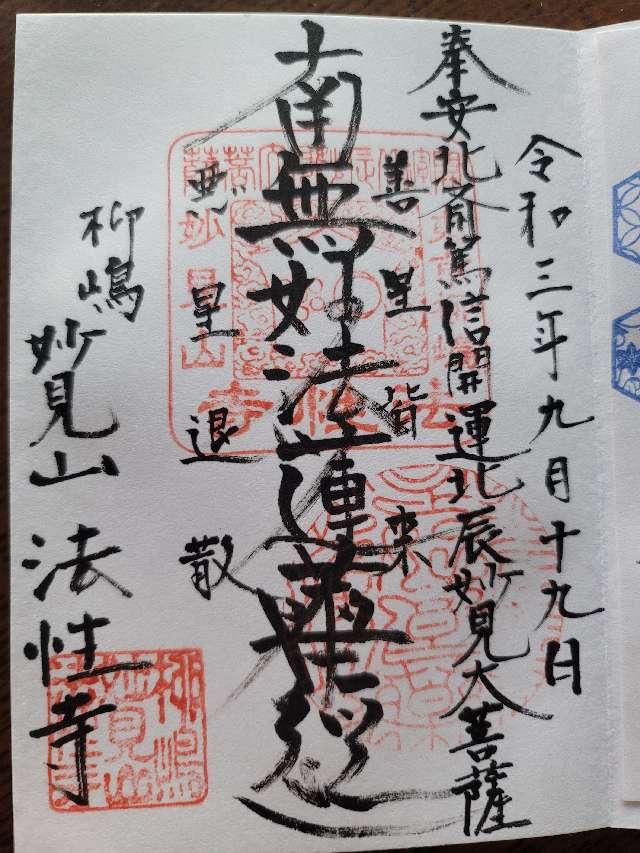 令和三年九月十九日
奉安北斎篤信開運北辰妙見大菩薩
善星皆来
南無妙法蓮華経
悪星退散
柳嶋
妙見山法性寺